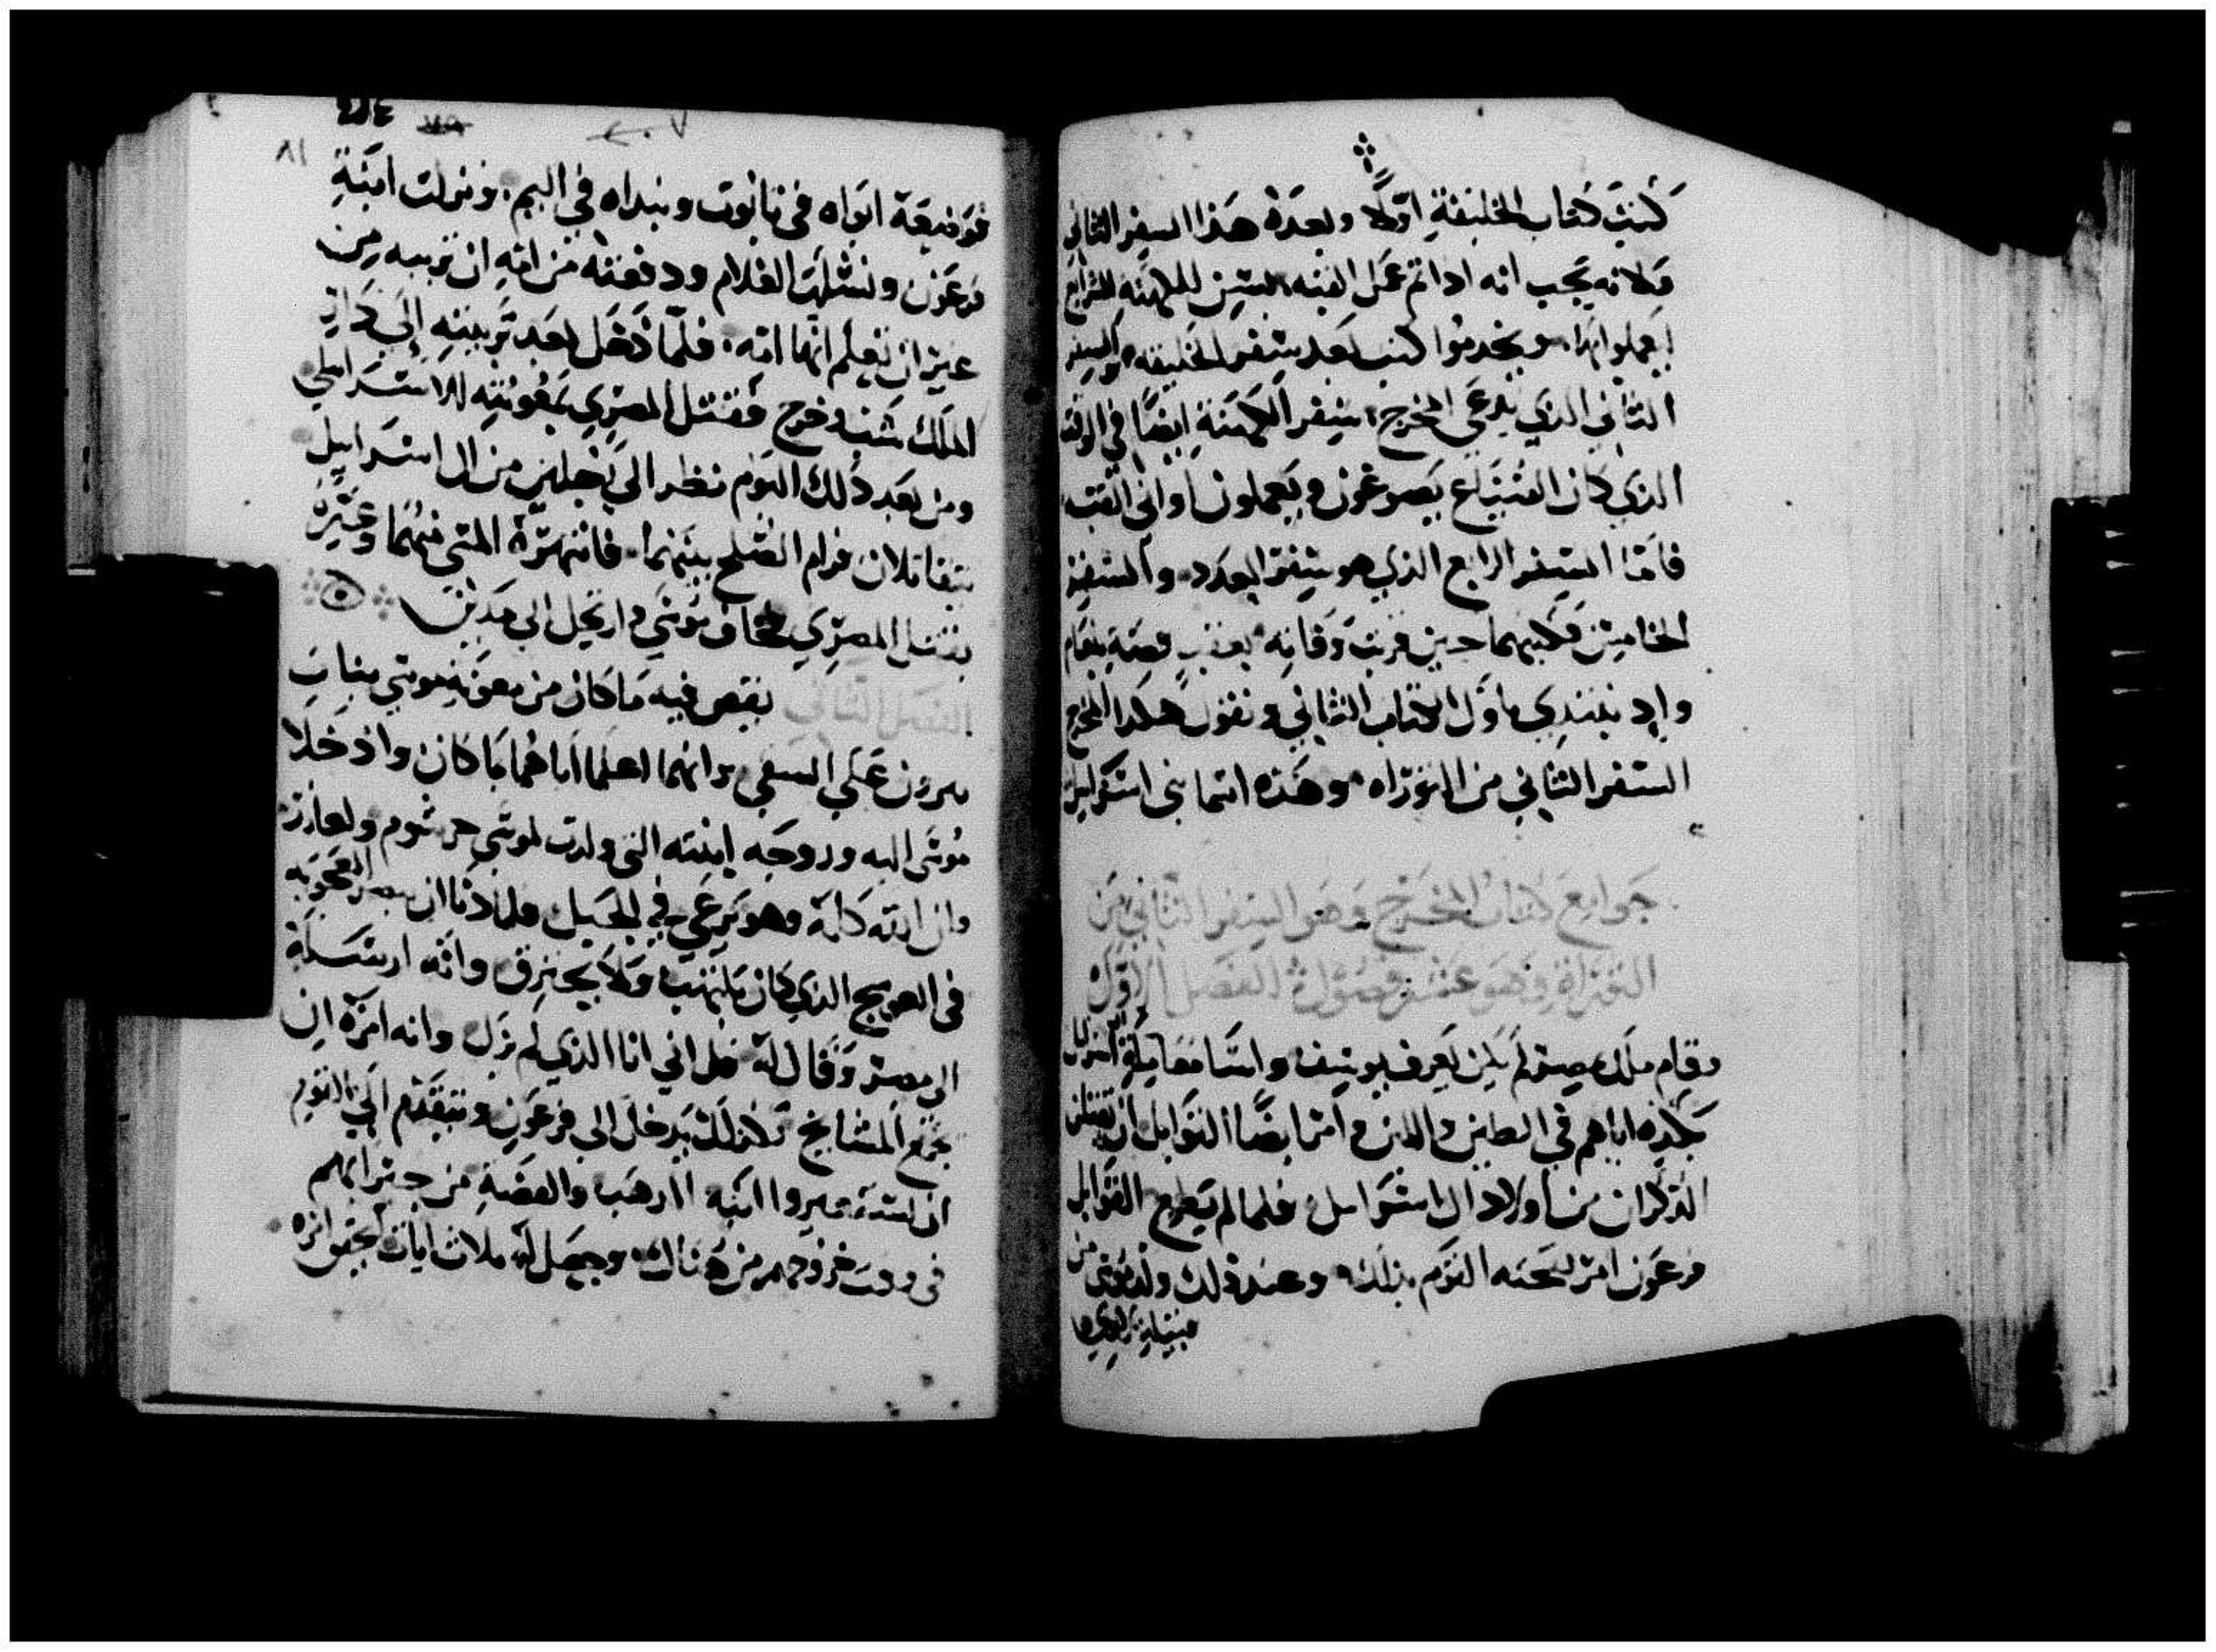 كتب كتاب الخليقة اولا وبعده هذا السفر الثاني
فلانه يجب انه اذا تم عمل القبه للكهنه
يعملوا ويخدموا كتب بعد سفر الخليقه والسفر
الثاني الذي يدعى المخرج، سفر الكهنة ايضا في الوقت
الذي كان الصناع يصوغون ويعملون اواني القبه
فاما السفر الرابع الذي هو سفر العدد، والسفر
الخامس فكتبهما حين قربت وفاته بعقب قصة بلعام
نبتدي باول الكتاب الثاني ونقول هكذا المخرج
السفر الثاني من التوراه، وهذه اسما بني اسراييل
جوامع كتاب المخرج وهو السفر الثاني من
التوراة وهو عشر فصول الفصل الاول
وقام ملك مصر لم يكن يعرف يوسف
اياهم في الطين واللبن وامر ايضا القوابل ان يقتلن
الذكران من اولاد ال اسراييل فلما لم يطع القوابل
فرعون امر القوم بذلك، وعند ذلك ولد موسى من
قبيلة لاوي
٨١
فوضعة ابواه في تابوت ونبداه في اليم، ونزلت ابنة
فرعون ونشلت الغلام ودفعته من امه ان تربيه من
غير ان تعلم انها امه، فلما دخل بعد تربيته الى دار
الملك شب وخرج فقتل المصري بمعونته للاسراييلي
ومن بعد ذلك اليوم نظر الى رجلين من ال اسراييل
يتقاتلان فرام الصلح بينهما، فانتهره المسي منهما وعيره
بقتل المصري فخاف موسى وارتحل الى مدين
الفصل الثاني يقص فيه ما كان من معونة موسى بنات
يترون على السقي وانهما اعلما اباهما بما كان واذ خلا
موسى اليه وزوجه ابنته التي ولدت لموسى جرشوم ولعازر
وان الله كلمه وهو يرعى في الجبل فلما دنا ان يبصر العجوبه
في العوسج الذي كان يلتهب ولا يحترق وانه ارسلة
الى مصر وقال له قل اني انا الذي لم يزل وانه امره ان
يجمع المشايخ وكذلك يدخل الى فرعون ويتقدم الى القوم
ان يستعيروا انيه الذهب والفضة من جيرانهم
في وقت خروجهم من هناك، وجعل له ثلاث ايات